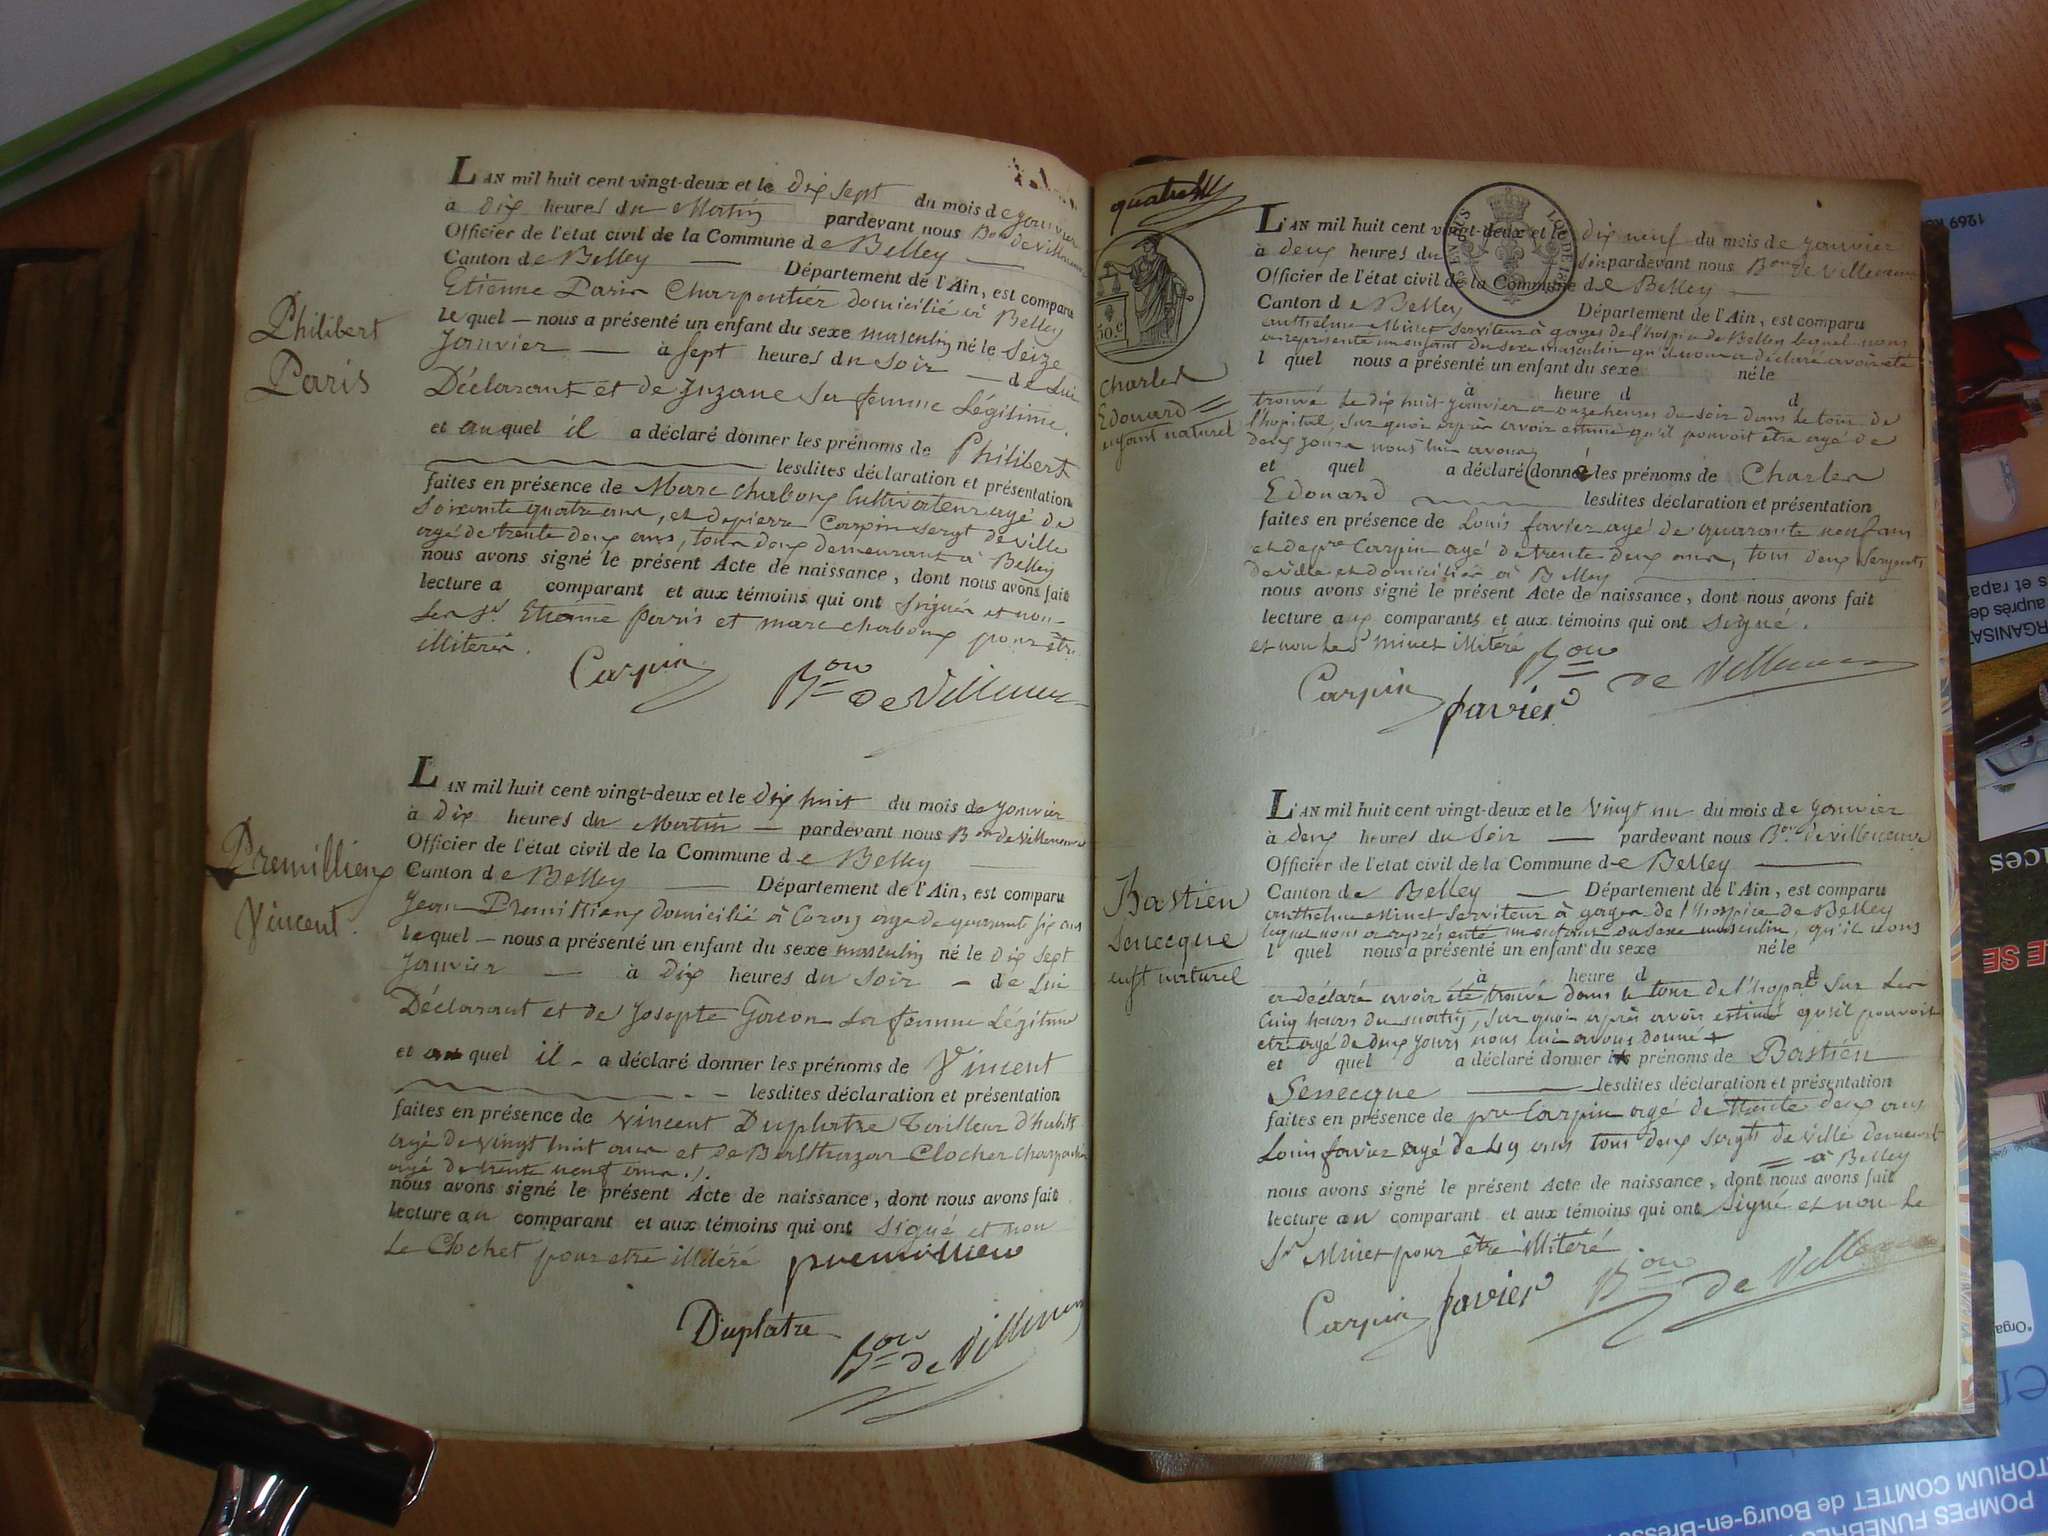 Philibert
Paris
L'AN mil huit cent vingt-deux et le dix sept du mois de janvier
à dix heures du Matin pardevant nous Bon de Villeneuve
Officier de l'état civil de la Commune de Belley
Canton de Belley Département de l'Ain, est comparu
Etienne Paris Charpentier domicilié à Belley
le quel nous a présenté un enfant du sexe masculin né le seize
Janvier à sept heures du soir de Lui
Déclarant et de Suzane sa femme Légitime.
et auquel il a déclaré donner les prénoms de Philibert
lesdites déclaration et présentation
faites en présence de Marc Chaboux Cultivateur agé de
soixante quatre ans, et de pierre Carpin sergt de ville
agé de trente deux ans, tous deux demeurant à Belley
nous avons signé le présent Acte de naissance, dont nous avons fait
lecture a comparant et aux témoins qui ont signés et non
les Srs Etienne Paris et marc chaboux pour être
illiterés.
Carpin Bon de Villeneuve
Premillieux
Vincent.
L'AN mil huit cent vingt-deux et le dix huit du mois de janvier
à dix heures du Matin pardevant nous Bon de Villeneuve
Officier de l'état civil de la Commune de Belley
Canton de Belley Département de l'Ain, est comparu
Jean Premillieux domicilié à Coron agé de quarante six ans
lequel nous a présenté un enfant du sexe masculin né le dix sept
janvier à dix heures du soir de Lui
Déclarant et de Josepte Gacon sa femme Légitime
et auquel il a déclaré donner les prénoms de Vincent
lesdites déclaration et présentation
faites en présence de Vincent Duplatre Tailleur d'habits
agé de vingt huit ans et de Balthazar Clochet charpentier
agé de trente neuf ans ./.
nous avons signé le présent Acte de naissance, dont nous avons fait
lecture au comparant et aux témoins qui ont signé et non
Le Clochet pour etre illitéré premillieu
Duplatre
Bon de Villeneuve
quatre
50.c
Charles
Edouard
enfant naturel
L'AN mil huit cent vingt-deux et le dix neuf du mois de janvier
à deux heures du soir pardevant nous Bon de Villeneuve
Officier de l'état civil de la Commune de Belley
Canton de Belley Département de l'Ain, est comparu
anthelme Minet serviteur à gages de l'hospice de Belley lequel nous
a représenté un enfant du sexe masculin qu'il nous a déclaré avoir été
l quel nous a présenté un enfant du sexe né le
à heure d d
trouvé le dix huit janvier a onze heures du soir dans le tour de
l'hopital, sur quoi après avoir estimé qu'il pouvoit être agé de
deux jours nous lui avons
et quel a déclaré (donné les prénoms de Charles
Edouard lesdites déclaration et présentation
faites en présence de Louis favier agé de quarante neuf ans
et de pre Carpin agé de trente deux ans, tous deux sergents
de ville et domiciliés à Belley
nous avons signé le présent Acte de naissance, dont nous avons fait
lecture aux comparants et aux témoins qui ont signé.
et non le Sr Minet illitéré Bon de Villeneuve
Carpin favier
Bastien
Senecque
enft naturel
L'AN mil huit cent vingt-deux et le vingt un du mois de janvier
à deux heures du soir pardevant nous Bon de Villeneuve
Officier de l'état civil de la Commune de Belley
Canton de Belley Département de l'Ain, est comparu
anthelme Minet serviteur à gages de l'hospice de Belley
lequel nous a représenté un enfant du sexe masculin, qu'il nous
l quel nous a présenté un enfant du sexe né le
à heure d d
a déclaré avoir été trouvé dans le tour de l'hopal sur les
cinq heures du matin, sur quoi après avoir estimé qu'il pouvoit
etre agé de deux jours nous lui avons donné
et quel a déclaré donner les prénoms de Bastien
Senecque lesdites déclaration et présentation
faites en présence de pre Carpin agé de trente deux ans
Louis favier agé de 49 ans tous deux sergts de ville demeurt
à Belley
nous avons signé le présent Acte de naissance, dont nous avons fait
lecture au comparant et aux témoins qui ont signé et non le
Sr Minet pour être illitéré
Carpin favier Bon de Villeneuve
1269
s et rapa
auprès de
RGANISA
ICES
E SE
*Orga
en
TORIUM COMTET de Bourg-en-Bresse
POMPES FUNEBRES